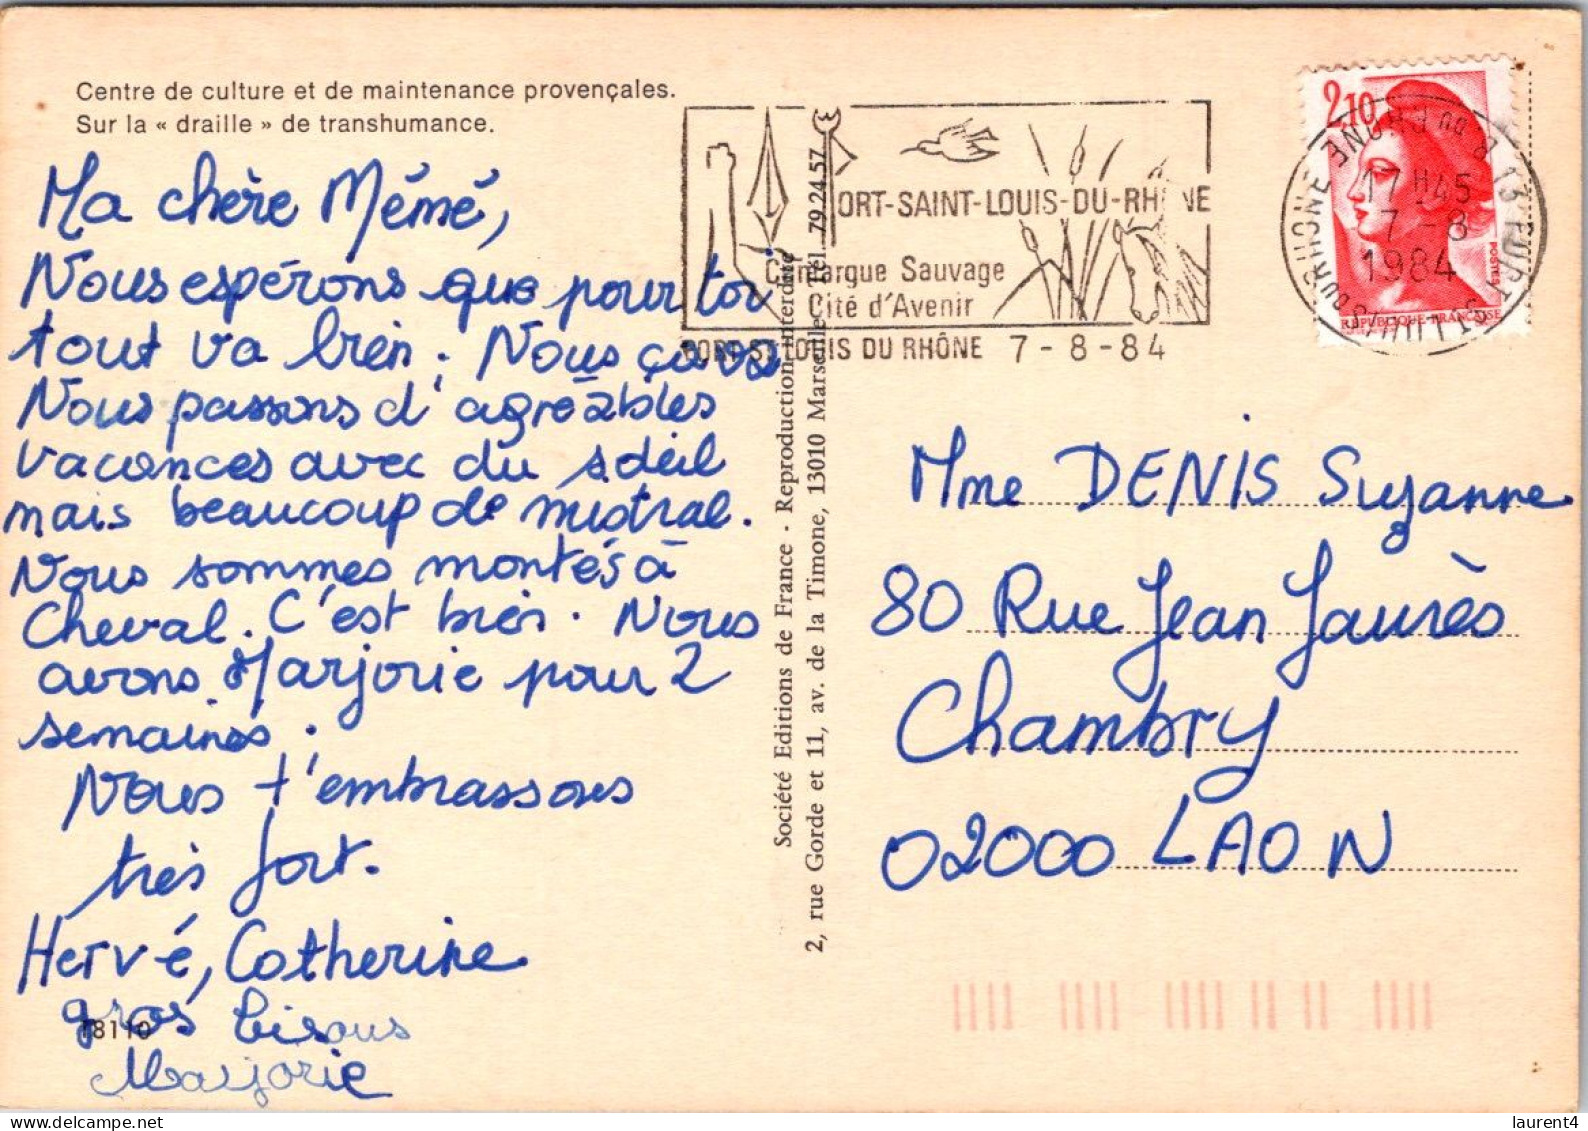 Centre de culture et de maintenance provençales.
Sur la « draille » de transhumance.
Ma chère Mémé,
Nous espérons que pour toi
tout va bien. Nous ça va
Nous passons d'agréables
vacances avec du soleil
mais beaucoup de mistral.
Nous sommes montés à
Cheval. C'est bien. Nous
avons Marjorie pour 2
semaines.
Nous t'embrassons
très fort.
Hervé, Catherine
gros bisous
Marjorie
18110
Société Editions de France - Reproduction interdite
2, rue Gorde et 11, av. de la Timone, 13010 Marseille Tél. 79.24.57
PORT-SAINT-LOUIS-DU-RHÔNE
Camargue Sauvage
Cité d'Avenir
PORT ST LOUIS DU RHÔNE 7-8-84
2,10
POSTES
REPUBLIQUE FRANCAISE
13 PORT ST LOUIS DU RHONE
17 H 45
7-8
1984
Mme DENIS Suzanne
80 Rue Jean Jaurès
Chambry
02000 LAON
delcampe.net
laurent4